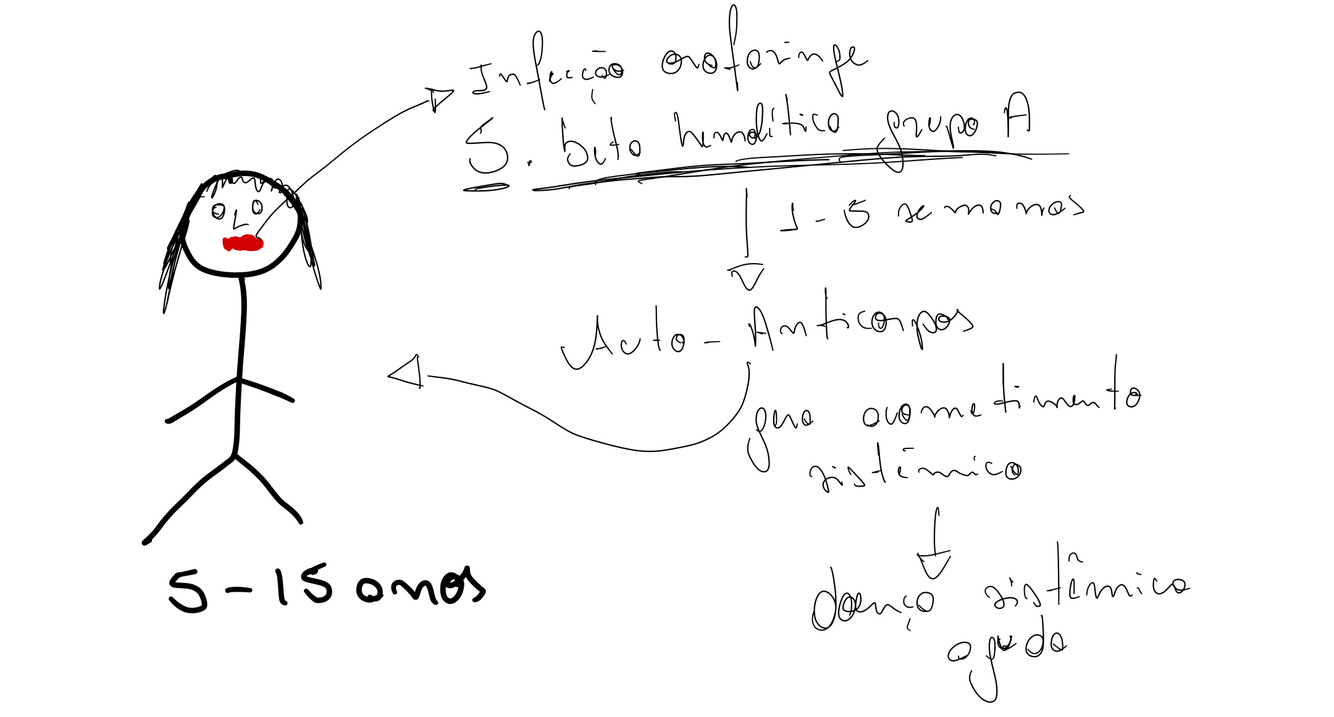 Infecção orofaringe
S. beta hemolítico grupo A
1-5 semanas
Auto-Anticorpos
gera acometimento
sistêmico
doença sistêmica
aguda
5-15 anos